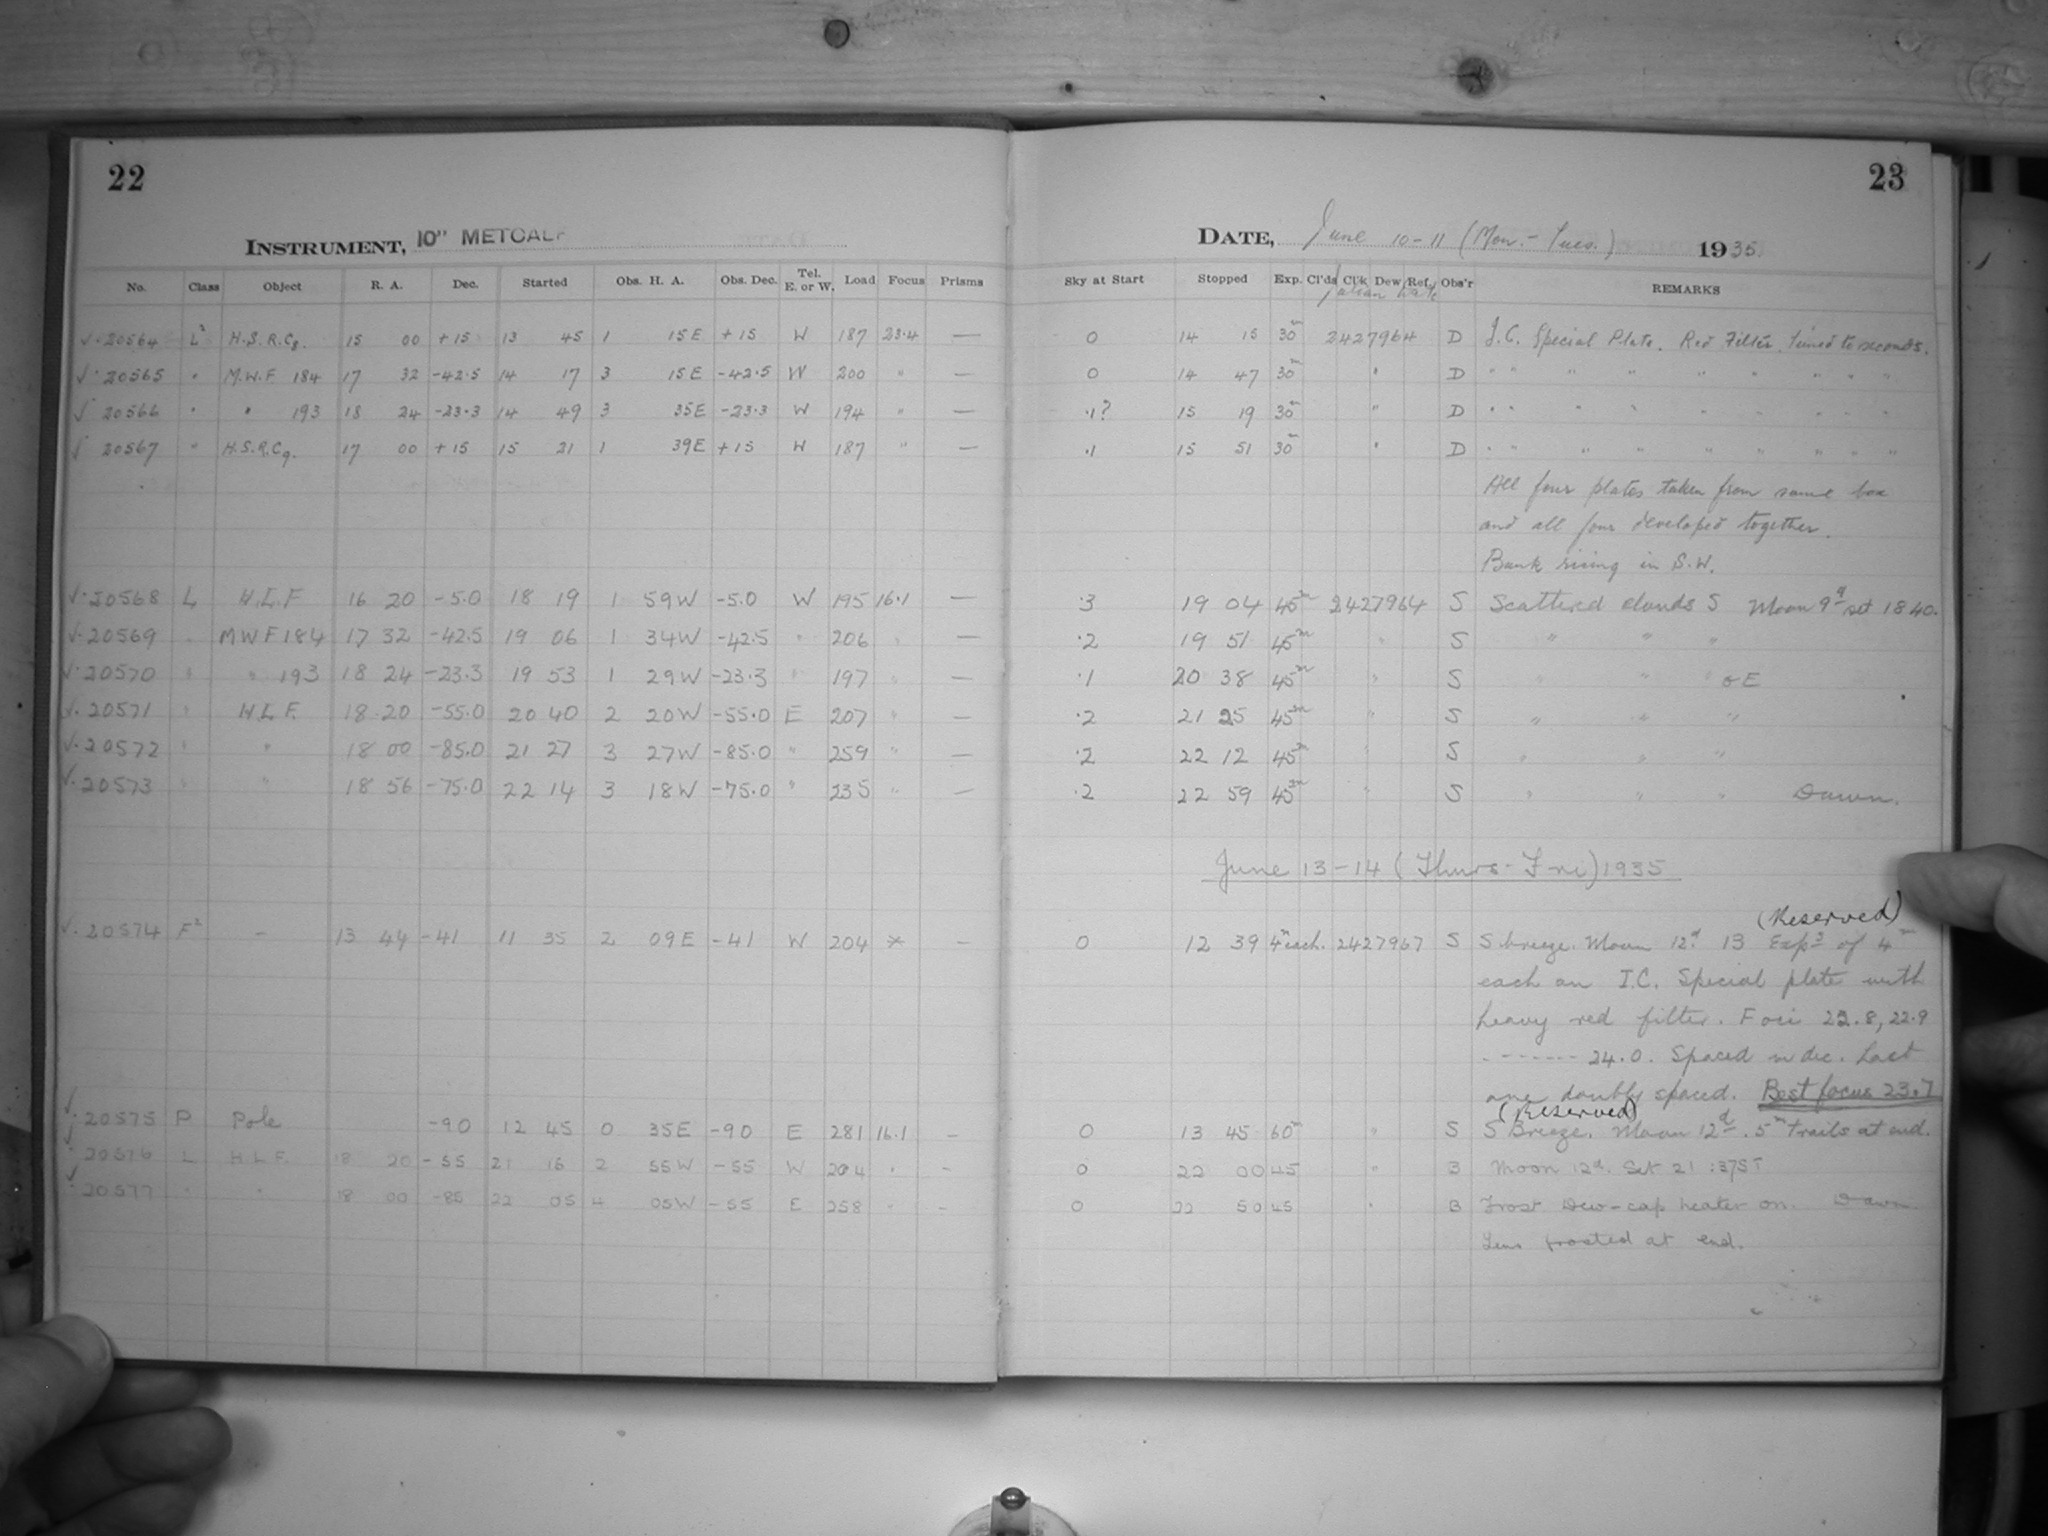 22
23
INSTRUMENT, 10" METCALF
DATE, June 10-11 (Mon.- Tues.) 1935
No. Class Object R. A. Dec. Started Obs. H. A. Obs. Dec. Tel. E. or W. Load Focus Prisms Sky at Start Stopped Exp. Cl'ds Cl'k Dew Ref. Obs'r REMARKS
Julian Date
√ 20564 L² H.S.R.C8. 15 00 +15 13 45 1 15E +15 W 187 23.4 — 0 14 15 30m 2427964 D I.C. Special Plate. Red Filter. timed to seconds.
√ 20565 " M.W.F 184 17 32 -42.5 14 17 3 15E -42.5 W 200 " — 0 14 47 30m " D " " " " " " " " "
√ 20566 " " 193 18 24 -23.3 14 49 3 35E -23.3 W 194 " — .1? 15 19 30m " D " " " " " " " " "
√ 20567 " H.S.R.C9. 17 00 +15 15 21 1 39E +15 W 187 " — .1 15 51 30m " D " " " " " " " " "
All four plates taken from same box
and all four developed together.
Bank rising in S.W.
√ 20568 L H.L.F 16 20 -5.0 18 19 1 59W -5.0 W 195 16.1 — .3 19 04 45m 2427964 S Scattered clouds S Moon 9d set 18 40.
√ 20569 " MWF 184 17 32 -42.5 19 06 1 34W -42.5 " 206 " — .2 19 51 45m " S " " "
√ 20570 " " 193 18 24 -23.3 19 53 1 29W -23.3 " 197 " — .1 20 38 45m " S " " " & E
√ 20571 " H.L.F. 18 20 -55.0 20 40 2 20W -55.0 E 207 " — .2 21 25 45m " S " " "
√ 20572 " " 18 00 -85.0 21 27 3 27W -85.0 " 259 " — .2 22 12 45m " S " " "
√ 20573 " " 18 56 -75.0 22 14 3 18W -75.0 " 235 " — .2 22 59 45m " S " " " Dawn.
June 13-14 (Thurs-Fri) 1935
(Reserved)
√ 20574 F² — 13 44 -41 11 35 2 09E -41 W 204 * — 0 12 39 4m each. 2427967 S S breeze. Moon 12d 13 Exps of 4m
each on I.C. Special plate with
heavy red filter. Foci 22.8, 22.9
- - - - - - - 24.0. Spaced in dec. Last
one doubly spaced. Best focus 23.7
(Reserved)
√ 20575 P Pole -90 12 45 0 35E -90 E 281 16.1 — 0 13 45 60m " S S Breeze. Moon 12d. 5m trails at end.
√ 20576 L H.L.F. 18 20 -55 21 16 2 55W -55 W 204 " — 0 22 00 45 " B Moon 12d. Set 21:37ST
√ 20577 " " 18 00 -85 22 05 4 05W -55 E 258 " — 0 22 50 45 " B Frost Dew-cap heater on. Dawn
Lens frosted at end.